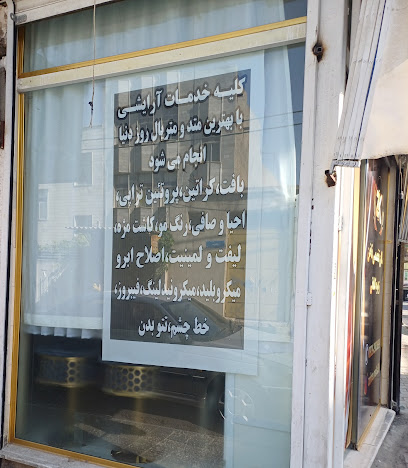 کلیه خدمات آرایشی
با بهترین متد و متریال روز دنیا
انجام می شود
بافت،کراتین،پروتئین تراپی،
احیا و صافی،رنگ مو،کاشت مژه،
لیفت و لمینیت،اصلاح ابرو
میکروبلید،میکرونیدلینگ،فیبروز،
خط چشم،تتو بدن